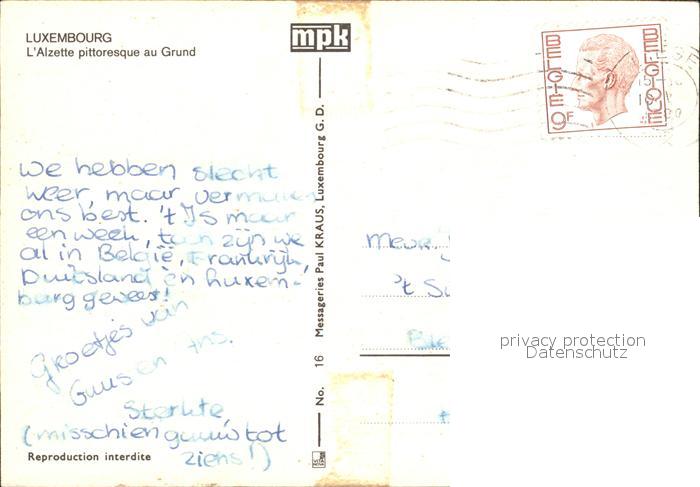 LUXEMBOURG
L'Alzette pittoresque au Grund
mpk
BELGIE
BELGIQUE
9F
We hebben slecht
weer, maar vermaken
ons best. 't IJs maar
een week, toch zijn we
al in België, Frankrijk,
Duitsland en Luxem-
burg geweest!
Groetjes van
Guus en Ans.
Sterkte,
(misschien gauw tot
ziens!)
Reproduction interdite
No. 16 Messageries Paul KRAUS, Luxembourg G. D.
Mevr.
't
privacy protection
Datenschutz